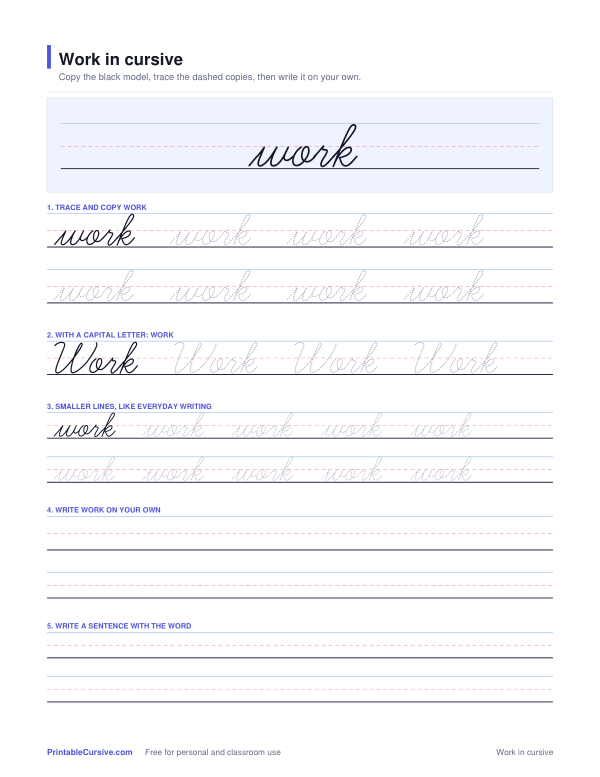 Work in cursive
Copy the black model, trace the dashed copies, then write it on your own.
work
1. TRACE AND COPY WORK
work work work work
work work work work
2. WITH A CAPITAL LETTER: WORK
Work Work Work Work
3. SMALLER LINES, LIKE EVERYDAY WRITING
work work work work work
work work work work work
4. WRITE WORK ON YOUR OWN
5. WRITE A SENTENCE WITH THE WORD
PrintableCursive.com Free for personal and classroom use Work in cursive